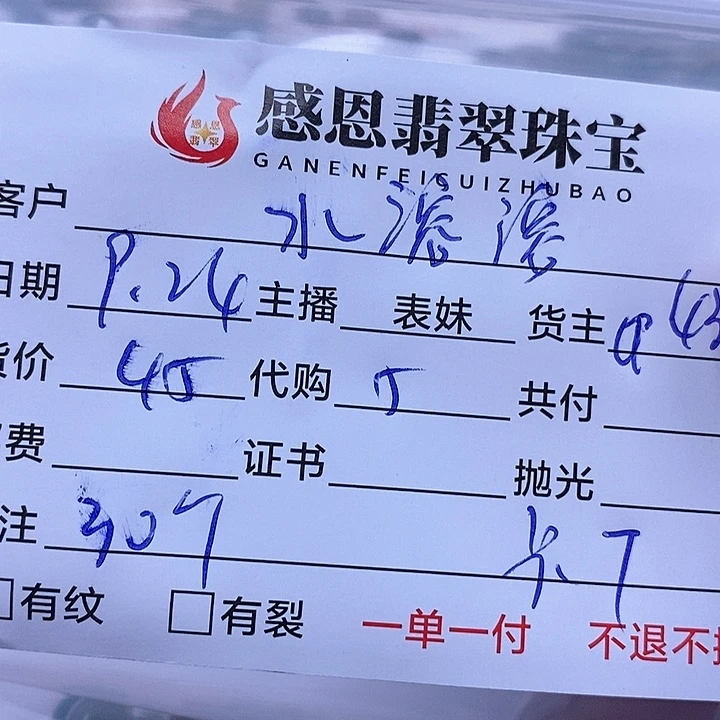 感恩
翡翠
感恩翡翠珠宝
GANENFEICUIZHUBAO
客户 水滚滚
日期 9.24 主播 表妹 货主
货价 45 代购 5 共付
费 证书 抛光
注 307
有纹 有裂 一单一付 不退不换